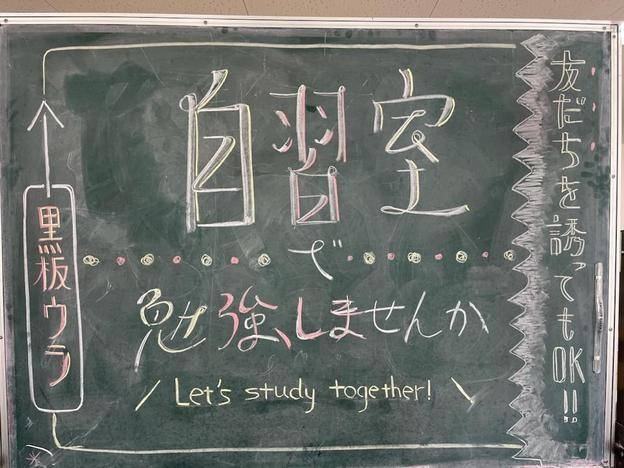 自習室
で
勉強しませんか
Let's study together!
友だちを誘ってもOK!!
黒板ウラ